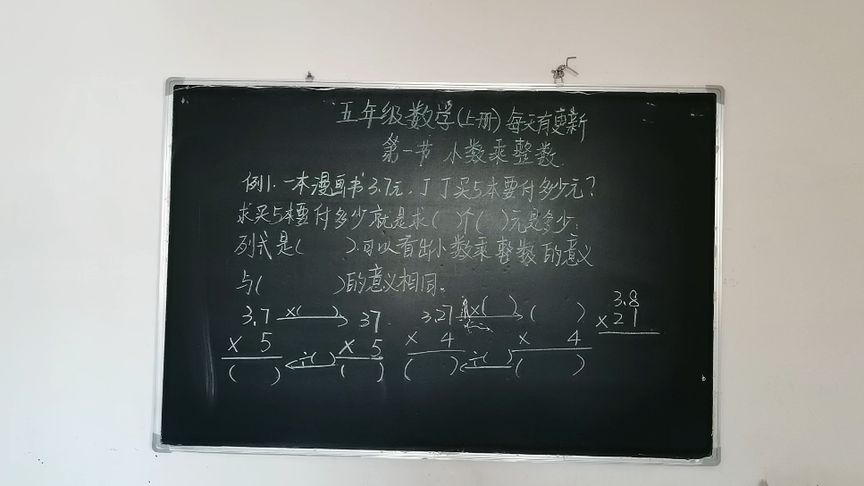 五年级数学(上册)每天有更新
第一节 小数乘整数
例1.一本漫画书3.7元,丁丁买5本要付多少元?
求买5本要付多少就是求( )个( )元是多少.
列式是( ).可以看出小数乘整数的意义
与( )的意义相同。
3.7 ×( ) 37 3.27 ×( ) ( ) 3.8
× 5 ÷( ) × 5 × 4 ÷( ) × 4 ×21
( ) ( ) ( ) ( )